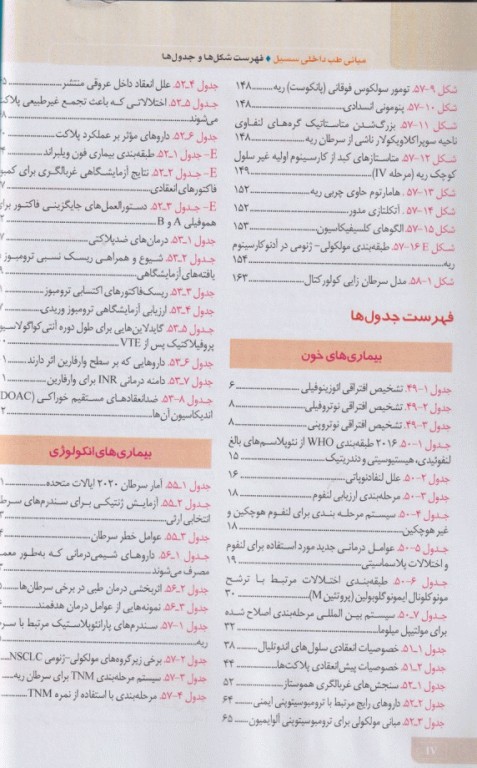 مبانی طب داخلی سسیل ♦ فهرست شکل‌ها و جدول‌ها
شکل ۹-۵۷. تومور سولکوس فوقانی (پانکوست) ریه..........۱۴۸
شکل ۱۰-۵۷. پنومونی انسدادی..........۱۴۸
شکل ۱۱-۵۷. بزرگ‌شدن متاستاتیک گره‌های لنفاوی
ناحیه سوپراکلاویکولار ناشی از سرطان ریه..........۱۴۸
شکل ۱۲-۵۷. متاستازهای کبد از کارسینوم اولیه غیر سلول
کوچک ریه (مرحله IV)..........۱۴۹
شکل ۱۳-۵۷. هامارتوم حاوی چربی ریه..........۱۵۲
شکل ۱۴-۵۷. آتلکتازی مدور..........۱۵۲
شکل ۱۵-۵۷. الگوهای کلسیفیکاسیون..........۱۵۳
شکل E ۱۶-۵۷. طبقه‌بندی مولکولی- ژنومی در آدنوکارسینوم
ریه..........۱۵۴
شکل ۱-۵۸. مدل سرطان زایی کولورکتال..........۱۶۳
فهرست جدول‌ها
بیماری‌های خون
جدول ۱-۴۹. تشخیص افتراقی ائوزینوفیلی..........۶
جدول ۲-۴۹. تشخیص افتراقی نوتروفیلی..........۸
جدول ۳-۴۹. تشخیص افتراقی نوتروپنی..........۸
جدول ۱-۵۰. ۲۰۱۶ طبقه‌بندی WHO از نئوپلاسم‌های بالغ
لنفوئیدی، هیستیوسیتی و دندریتیک..........۱۵
جدول ۲-۵۰. علل لنفادنوپاتی..........۱۶
جدول ۳-۵۰. مرحله‌بندی ارزیابی لنفوم..........۱۸
جدول ۴-۵۰. سیستم مرحله بندی برای لنفوم هوچکین و
غیر هوچکین..........۱۸
جدول ۵-۵۰. عوامل درمانی جدید مورد استفاده برای لنفوم
و اختلالات پلاسماسیتی..........۱۹
جدول ۶-۵۰. طبقه‌بندی اختلالات مرتبط با ترشح
مونوکلونال ایمونوگلوبولین (پروتئین M)..........۳۰
جدول ۷-۵۰. سیستم بین المللی مرحله‌بندی اصلاح شده
برای مولتیپل میلوما..........۳۲
جدول ۱-۵۱. خصوصیات انعقادی سلول‌های اندوتلیال..........۳۸
جدول ۲-۵۱. خصوصیات پیش‌انعقادی پلاکت‌ها..........۴۴
جدول ۱-۵۲. سنجش‌های غربالگری هموستاز..........۵۲
جدول ۲-۵۲. داروهای رایج مرتبط با ترومبوسیتوپنی ایمنی..........۶۴
جدول ۳-۵۲. مبانی مولکولی برای ترومبوسیتوپنی آلوایمیون..........۶۵
جدول ۴-۵۲. علل انعقاد داخل عروقی منتشر
جدول ۵-۵۲. اختلالاتی که باعث تجمع غیرطبیعی
می‌شوند
جدول ۶-۵۲. داروهای مؤثر بر عملکرد پلاکت
E- جدول ۱-۵۲. طبقه‌بندی بیماری فون ویلبراند
E- جدول ۲-۵۲. نتایج آزمایشگاهی غربالگری برای
فاکتورهای انعقادی
E- جدول ۳-۵۲. دستورالعمل‌های جایگزینی فاکتور
هموفیلی A و B
جدول ۱-۵۳. درمان‌های ضدپلاکتی
جدول ۲-۵۳. شیوع و همراهی ریسک نسبی ترومبوز
یافته‌های آزمایشگاهی
جدول ۳-۵۳. ریسک‌فاکتورهای اکتسابی ترومبوز
جدول ۴-۵۳. ارزیابی آزمایشگاهی ترومبوز وریدی
جدول ۵-۵۳. گایدلاین‌هایی برای طول دوره آنتی
پروفیلاکتیک پس از VTE
جدول ۶-۵۳. داروهایی که بر سطح وارفارین اثر دارند
جدول ۷-۵۳. دامنه درمانی INR برای وارفارین
جدول ۸-۵۳. ضدانعقادهای مستقیم خوراکی (DOAC)
اندیکاسیون آن‌ها
بیماری‌های انکولوژی
جدول ۱-۵۵. آمار سرطان ۲۰۲۰ ایالات متحده
جدول ۲-۵۵. آزمایش ژنتیکی برای سندرم‌های
انتخابی ارثی
جدول ۳-۵۵. عوامل خطر سرطان
جدول ۱-۵۶. داروهای شیمی‌درمانی که به‌طور
مصرف می‌شوند
جدول ۲-۵۶. اثربخشی درمان طبی در برخی سرطان‌ها
جدول ۳-۵۶. نمونه‌هایی از عوامل درمان هدفمند
جدول ۱-۵۷. سندرم‌های پارانئوپلاستیک مرتبط با
ریه
جدول ۲-۵۷. برخی زیرگروه‌های مولکولی-ژنومی NSCLC
جدول ۳-۵۷. سیستم مرحله‌بندی TNM برای سرطان ریه
جدول ۴-۵۷. مرحله‌بندی با استفاده از نمره TNM
IV